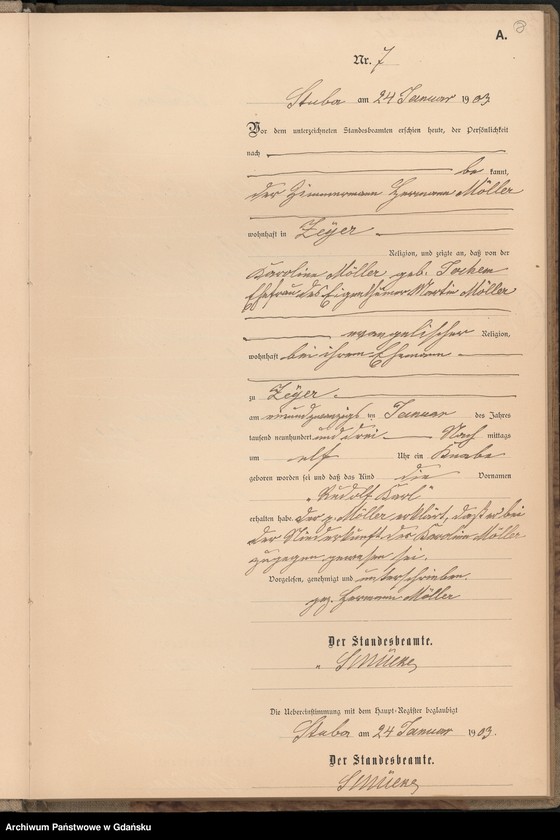 A.
Nr. 7
Stuba am 24 Januar 1903
Vor dem unterzeichneten Standesbeamten erschien heute, der Persönlichkeit
nach
be kannt,
der Zimmermann Hermann Möller
wohnhaft in Zeÿer
Religion, und zeigte an, daß von der
Karoline Möller geb. Jochem
Ehefrau des Eigenthümer Martin Möller
evangelischer Religion,
wohnhaft bei ihrem Ehemann
zu Zeÿer
am einundzwanzigsten Januar des Jahres
tausend neunhundert und drei Nach mittags
um elf Uhr ein Knabe
geboren worden sei und daß das Kind die Vornamen
„Rudolf Karl“
erhalten habe. Der p. Möller erklärt, daß er bei
der Niederkunft der Karoline Möller
zugegen gewesen sei.
Vorgelesen, genehmigt und unterschrieben.
gez. Hermann Möller
Der Standesbeamte.
Die Uebereinstimmung mit dem Haupt-Register beglaubigt
Stuba am 24 Januar 1903.
Der Standesbeamte.
Archiwum Państwowe w Gdańsku